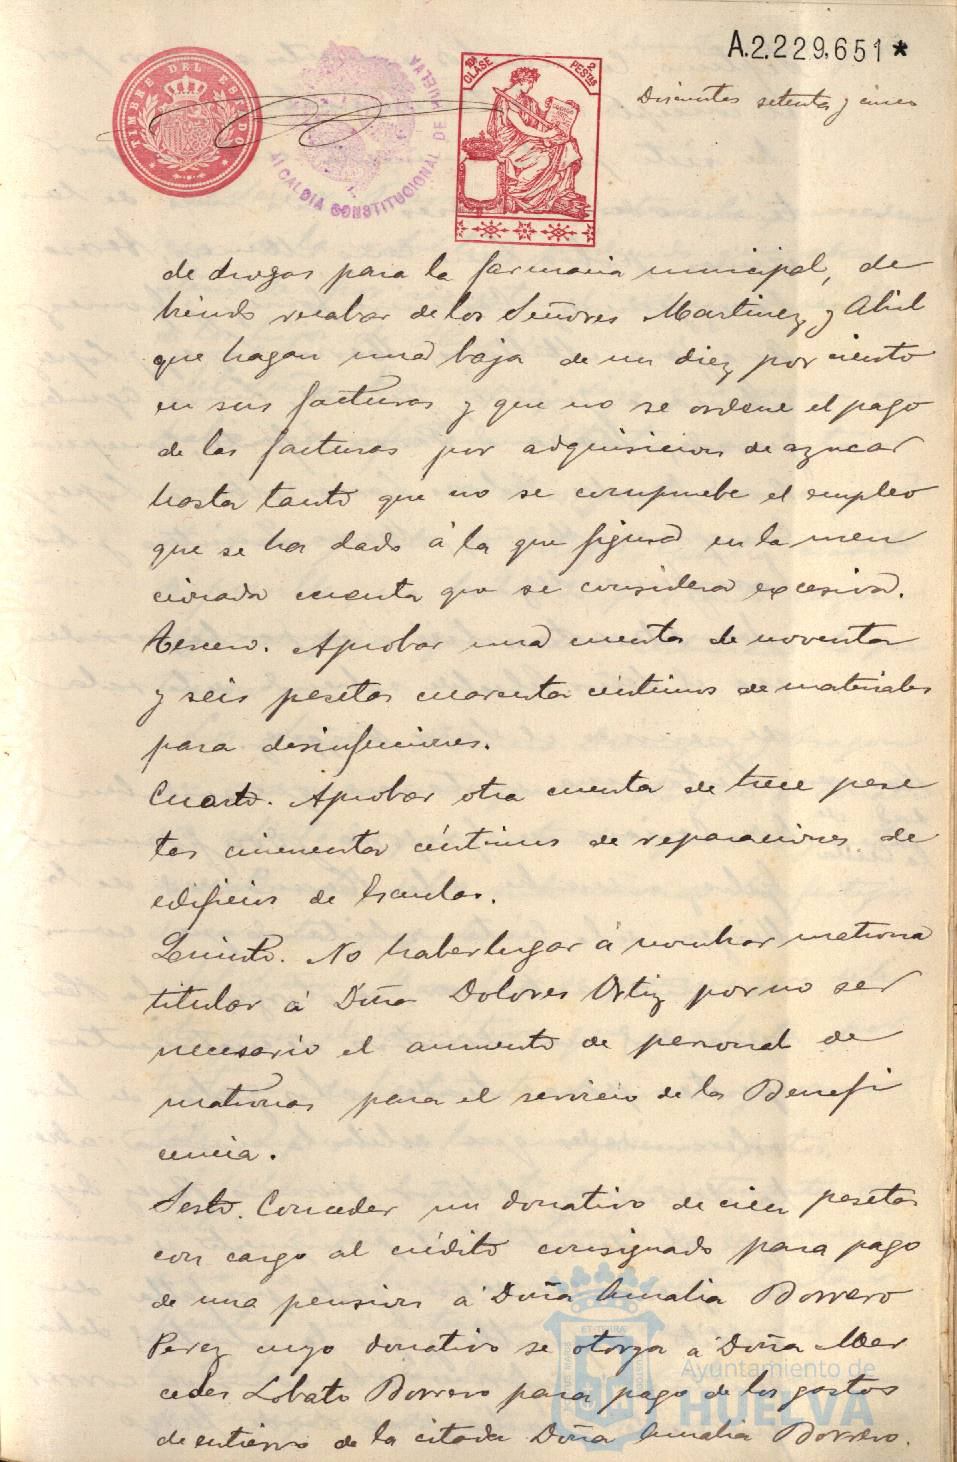 A.2.229.651*
TIMBRE DEL ESTADO
ALCALDIA CONSTITUCIONAL DE HUELVA
10ª CLASE
2 PESETAS
Doscientos setenta y cinco
de drogas para la farmacia municipal, de
biendo recabar de los Señores Martinez y Abril
que hagan una baja de un diez por ciento
en sus facturas y que no se ordene el pago
de las facturas por adquisicion de azucar
hasta tanto que no se compruebe el empleo
que se ha dado á la que figura en la men
cionada cuenta que se considera excesiva.
Tercero. Aprobar una cuenta de noventa
y seis pesetas cuarenta céntimos de materiales
para desinfecciones.
Cuarto. Aprobar otra cuenta de trece pese
tas cincuenta céntimos de reparaciones de
edificios de Escuelas.
Quinto. No haber lugar á nombrar matrona
titular á Dña Dolores Ortiz por no ser
necesario el aumento de personal de
matronas para el servicio de la Benefi
cencia.
Sesto. Conceder un donativo de cien pesetas
con cargo al crédito consignado para pago
de una pension á Doña Amalia Borrero
Perez cuyo donativo se otorga á Doña Mer
cedes Lobato Borrero para pago de los gastos
de entierro de la citada Doña Amalia Borrero.
Ayuntamiento de
HUELVA